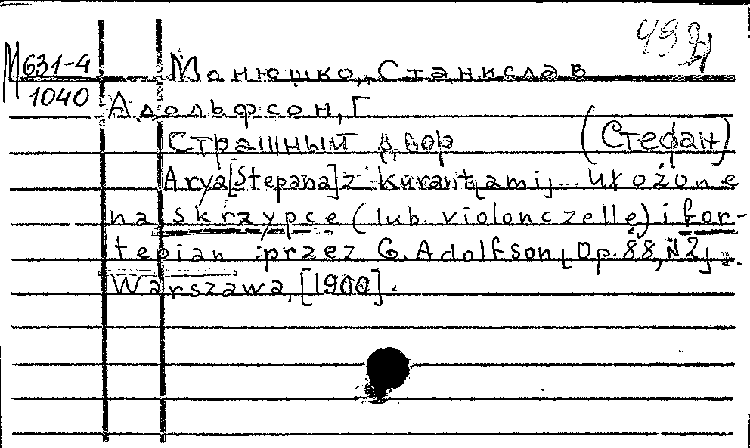 492
М631-4
1040
Монюшко, Станислав
Адольфсон, Г
Страшный двор (Стефан)
Arya [Stepana] z kurantami... Ułożone
na skrzypce (lub violonczellę) i for-
tepian przez G. Adolfson [Op. 88, №2].
Warszawa, [1900].